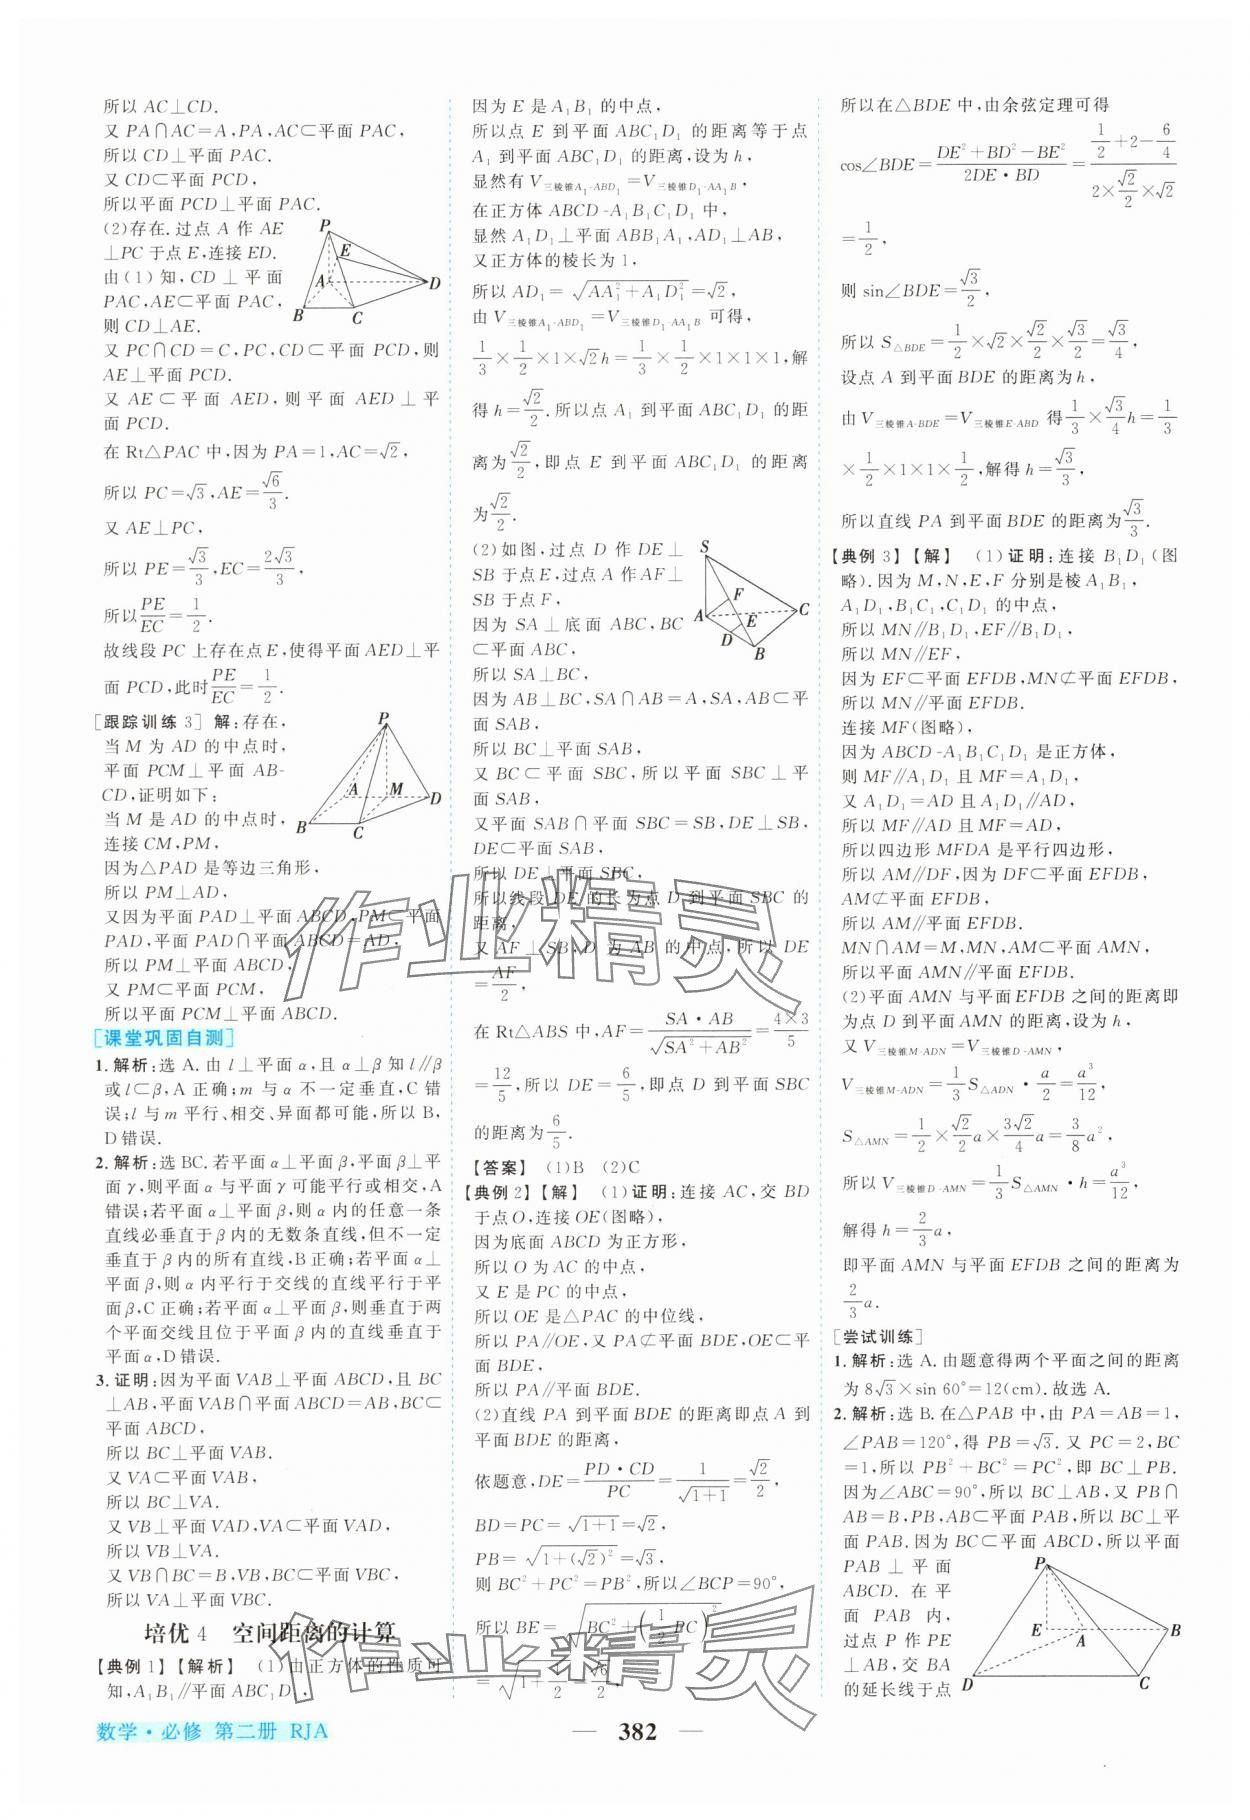 所以 AC⊥CD.
又 PA∩AC=A,PA,AC⊂平面 PAC,
所以 CD⊥平面 PAC.
又 CD⊂平面 PCD,
所以平面 PCD⊥平面 PAC.
(2)存在.过点 A 作 AE
⊥PC 于点 E,连接 ED.
由(1)知,CD⊥平面
PAC,AE⊂平面 PAC,
则 CD⊥AE.
P
E
A
D
B
C
又 PC∩CD=C,PC,CD⊂平面 PCD,则
AE⊥平面 PCD.
又 AE⊂平面 AED,则平面 AED⊥平
面 PCD.
在 Rt△PAC 中,因为 PA=1,AC=√2,
所以 PC=√3,AE=√6/3.
又 AE⊥PC,
所以 PE=√3/3,EC=2√3/3.
所以PE/EC=1/2.
故线段 PC 上存在点 E,使得平面 AED⊥平
面 PCD,此时PE/EC=1/2.
[跟踪训练 3] 解:存在,
当 M 为 AD 的中点时,
平面 PCM⊥平面 AB-
CD,证明如下:
当 M 是 AD 的中点时,
连接 CM,PM,
P
A
M
D
B
C
因为△PAD 是等边三角形,
所以 PM⊥AD,
又因为平面 PAD⊥平面 ABCD,PM⊂平面
PAD,平面 PAD∩平面 ABCD=AD,
所以 PM⊥平面 ABCD,
又 PM⊂平面 PCM,
所以平面 PCM⊥平面 ABCD.
[课堂巩固自测]
1.解析:选 A.由 l⊥平面 α,且 α⊥β 知 l∥β
或 l⊂β,A 正确;m 与 α 不一定垂直,C 错
误;l 与 m 平行、相交、异面都可能,所以 B,
D 错误.
2.解析:选 BC.若平面 α⊥平面 β,平面 β⊥平
面 γ,则平面 α 与平面 γ 可能平行或相交,A
错误;若平面 α⊥平面 β,则 α 内的任意一条
直线必垂直于 β 内的无数条直线,但不一定
垂直于 β 内的所有直线,B 正确;若平面 α⊥
平面 β,则 α 内平行于交线的直线平行于平
面 β,C 正确;若平面 α⊥平面 β,则垂直于两
个平面交线且位于平面 β 内的直线垂直于
平面 α,D 错误.
3.证明:因为平面 VAB⊥平面 ABCD,且 BC
⊥AB,平面 VAB∩平面 ABCD=AB,BC⊂
平面 ABCD,
所以 BC⊥平面 VAB.
又 VA⊂平面 VAB,
所以 BC⊥VA.
又 VB⊥平面 VAD,VA⊂平面 VAD,
所以 VB⊥VA.
又 VB∩BC=B,VB,BC⊂平面 VBC,
所以 VA⊥平面 VBC.
培优 4 空间距离的计算
【典例 1】【解析】 (1)由正方体的性质可
知,A₁B₁∥平面 ABC₁D₁,
因为 E 是 A₁B₁ 的中点,
所以点 E 到平面 ABC₁D₁ 的距离等于点
A₁ 到平面 ABC₁D₁ 的距离,设为 h,
显然有 V三棱锥A₁-ABD₁=V三棱锥D₁-AA₁B,
在正方体 ABCD-A₁B₁C₁D₁ 中,
显然 A₁D₁⊥平面 ABB₁A₁,AD₁⊥AB,
又正方体的棱长为 1,
所以 AD₁=√(AA₁²+A₁D₁²)=√2,
由 V三棱锥A₁-ABD₁=V三棱锥D₁-AA₁B可得,
1/3×1/2×1×√2h=1/3×1/2×1×1×1,解
得 h=√2/2.所以点 A₁ 到平面 ABC₁D₁ 的距
离为√2/2,即点 E 到平面 ABC₁D₁ 的距离
为√2/2.
(2)如图,过点 D 作 DE⊥
SB 于点 E,过点 A 作 AF⊥
SB 于点 F,
因为 SA⊥底面 ABC,BC
⊂平面 ABC,
所以 SA⊥BC,
S
F
A
C
E
D
B
因为 AB⊥BC,SA∩AB=A,SA,AB⊂平
面 SAB,
所以 BC⊥平面 SAB,
又 BC⊂平面 SBC,所以平面 SBC⊥平
面 SAB,
又平面 SAB∩平面 SBC=SB,DE⊥SB,
DE⊂平面 SAB,
所以 DE⊥平面 SBC,
所以线段 DE 的长为点 D 到平面 SBC 的
距离,
又 AF⊥SB,D 为 AB 的中点,所以 DE
=AF/2,
在 Rt△ABS 中,AF=SA·AB/√(SA²+AB²)=4×3/5
=12/5,所以 DE=6/5,即点 D 到平面 SBC
的距离为6/5.
【答案】 (1)B (2)C
【典例 2】【解】 (1)证明:连接 AC,交 BD
于点 O,连接 OE(图略),
因为底面 ABCD 为正方形,
所以 O 为 AC 的中点,
又 E 是 PC 的中点,
所以 OE 是△PAC 的中位线,
所以 PA∥OE,又 PA⊄平面 BDE,OE⊂平
面 BDE,
所以 PA∥平面 BDE.
(2)直线 PA 到平面 BDE 的距离即点 A 到
平面 BDE 的距离,
依题意,DE=PD·CD/PC=1/√(1+1)=√2/2,
BD=PC=√(1+1)=√2,
PB=√(1+(√2)²)=√3,
则 BC²+PC²=PB²,所以∠BCP=90°,
所以 BE=√(BC²+(1/2 PC)²)
=√(1+1/2)=√6/2,
所以在△BDE 中,由余弦定理可得
cos∠BDE=(DE²+BD²-BE²)/(2DE·BD)=(1/2+2-6/4)/(2×√2/2×√2)
=1/2,
则 sin∠BDE=√3/2,
所以 S△BDE=1/2×√2×√2/2×√3/2=√3/4,
设点 A 到平面 BDE 的距离为 h,
由 V三棱锥A-BDE=V三棱锥E-ABD 得1/3×√3/4h=1/3
×1/2×1×1×1/2,解得 h=√3/3,
所以直线 PA 到平面 BDE 的距离为√3/3.
【典例 3】【解】 (1)证明:连接 B₁D₁(图
略).因为 M,N,E,F 分别是棱 A₁B₁,
A₁D₁,B₁C₁,C₁D₁ 的中点,
所以 MN∥B₁D₁,EF∥B₁D₁,
所以 MN∥EF,
因为 EF⊂平面 EFDB,MN⊄平面 EFDB,
所以 MN∥平面 EFDB.
连接 MF(图略),
因为 ABCD-A₁B₁C₁D₁ 是正方体,
则 MF∥A₁D₁ 且 MF=A₁D₁,
又 A₁D₁=AD 且 A₁D₁∥AD,
所以 MF∥AD 且 MF=AD,
所以四边形 MFDA 是平行四边形,
所以 AM∥DF,因为 DF⊂平面 EFDB,
AM⊄平面 EFDB,
所以 AM∥平面 EFDB,
MN∩AM=M,MN,AM⊂平面 AMN,
所以平面 AMN∥平面 EFDB.
(2)平面 AMN 与平面 EFDB 之间的距离即
为点 D 到平面 AMN 的距离,设为 h,
又 V三棱锥M-ADN=V三棱锥D-AMN,
V三棱锥M-ADN=1/3S△ADN·a/2=a³/12,
S△AMN=1/2×√2/2a×3√2/4a=3/8a²,
所以 V三棱锥D-AMN=1/3S△AMN·h=a³/12,
解得 h=2/3a,
即平面 AMN 与平面 EFDB 之间的距离为
2/3a.
[尝试训练]
1.解析:选 A.由题意得两个平面之间的距离
为 8√3×sin 60°=12(cm).故选 A.
2.解析:选 B.在△PAB 中,由 PA=AB=1,
∠PAB=120°,得 PB=√3.又 PC=2,BC
=1,所以 PB²+BC²=PC²,即 BC⊥PB.
因为∠ABC=90°,所以 BC⊥AB,又 PB∩
AB=B,PB,AB⊂平面 PAB,所以 BC⊥平
面 PAB.因为 BC⊂平面 ABCD,所以平面
PAB⊥平面
ABCD.在平
面 PAB 内,
过点 P 作 PE
⊥AB,交 BA
的延长线于点
P
E
A
B
D
C
作业精灵
作业精灵
数学·必修 第二册 RJA
382